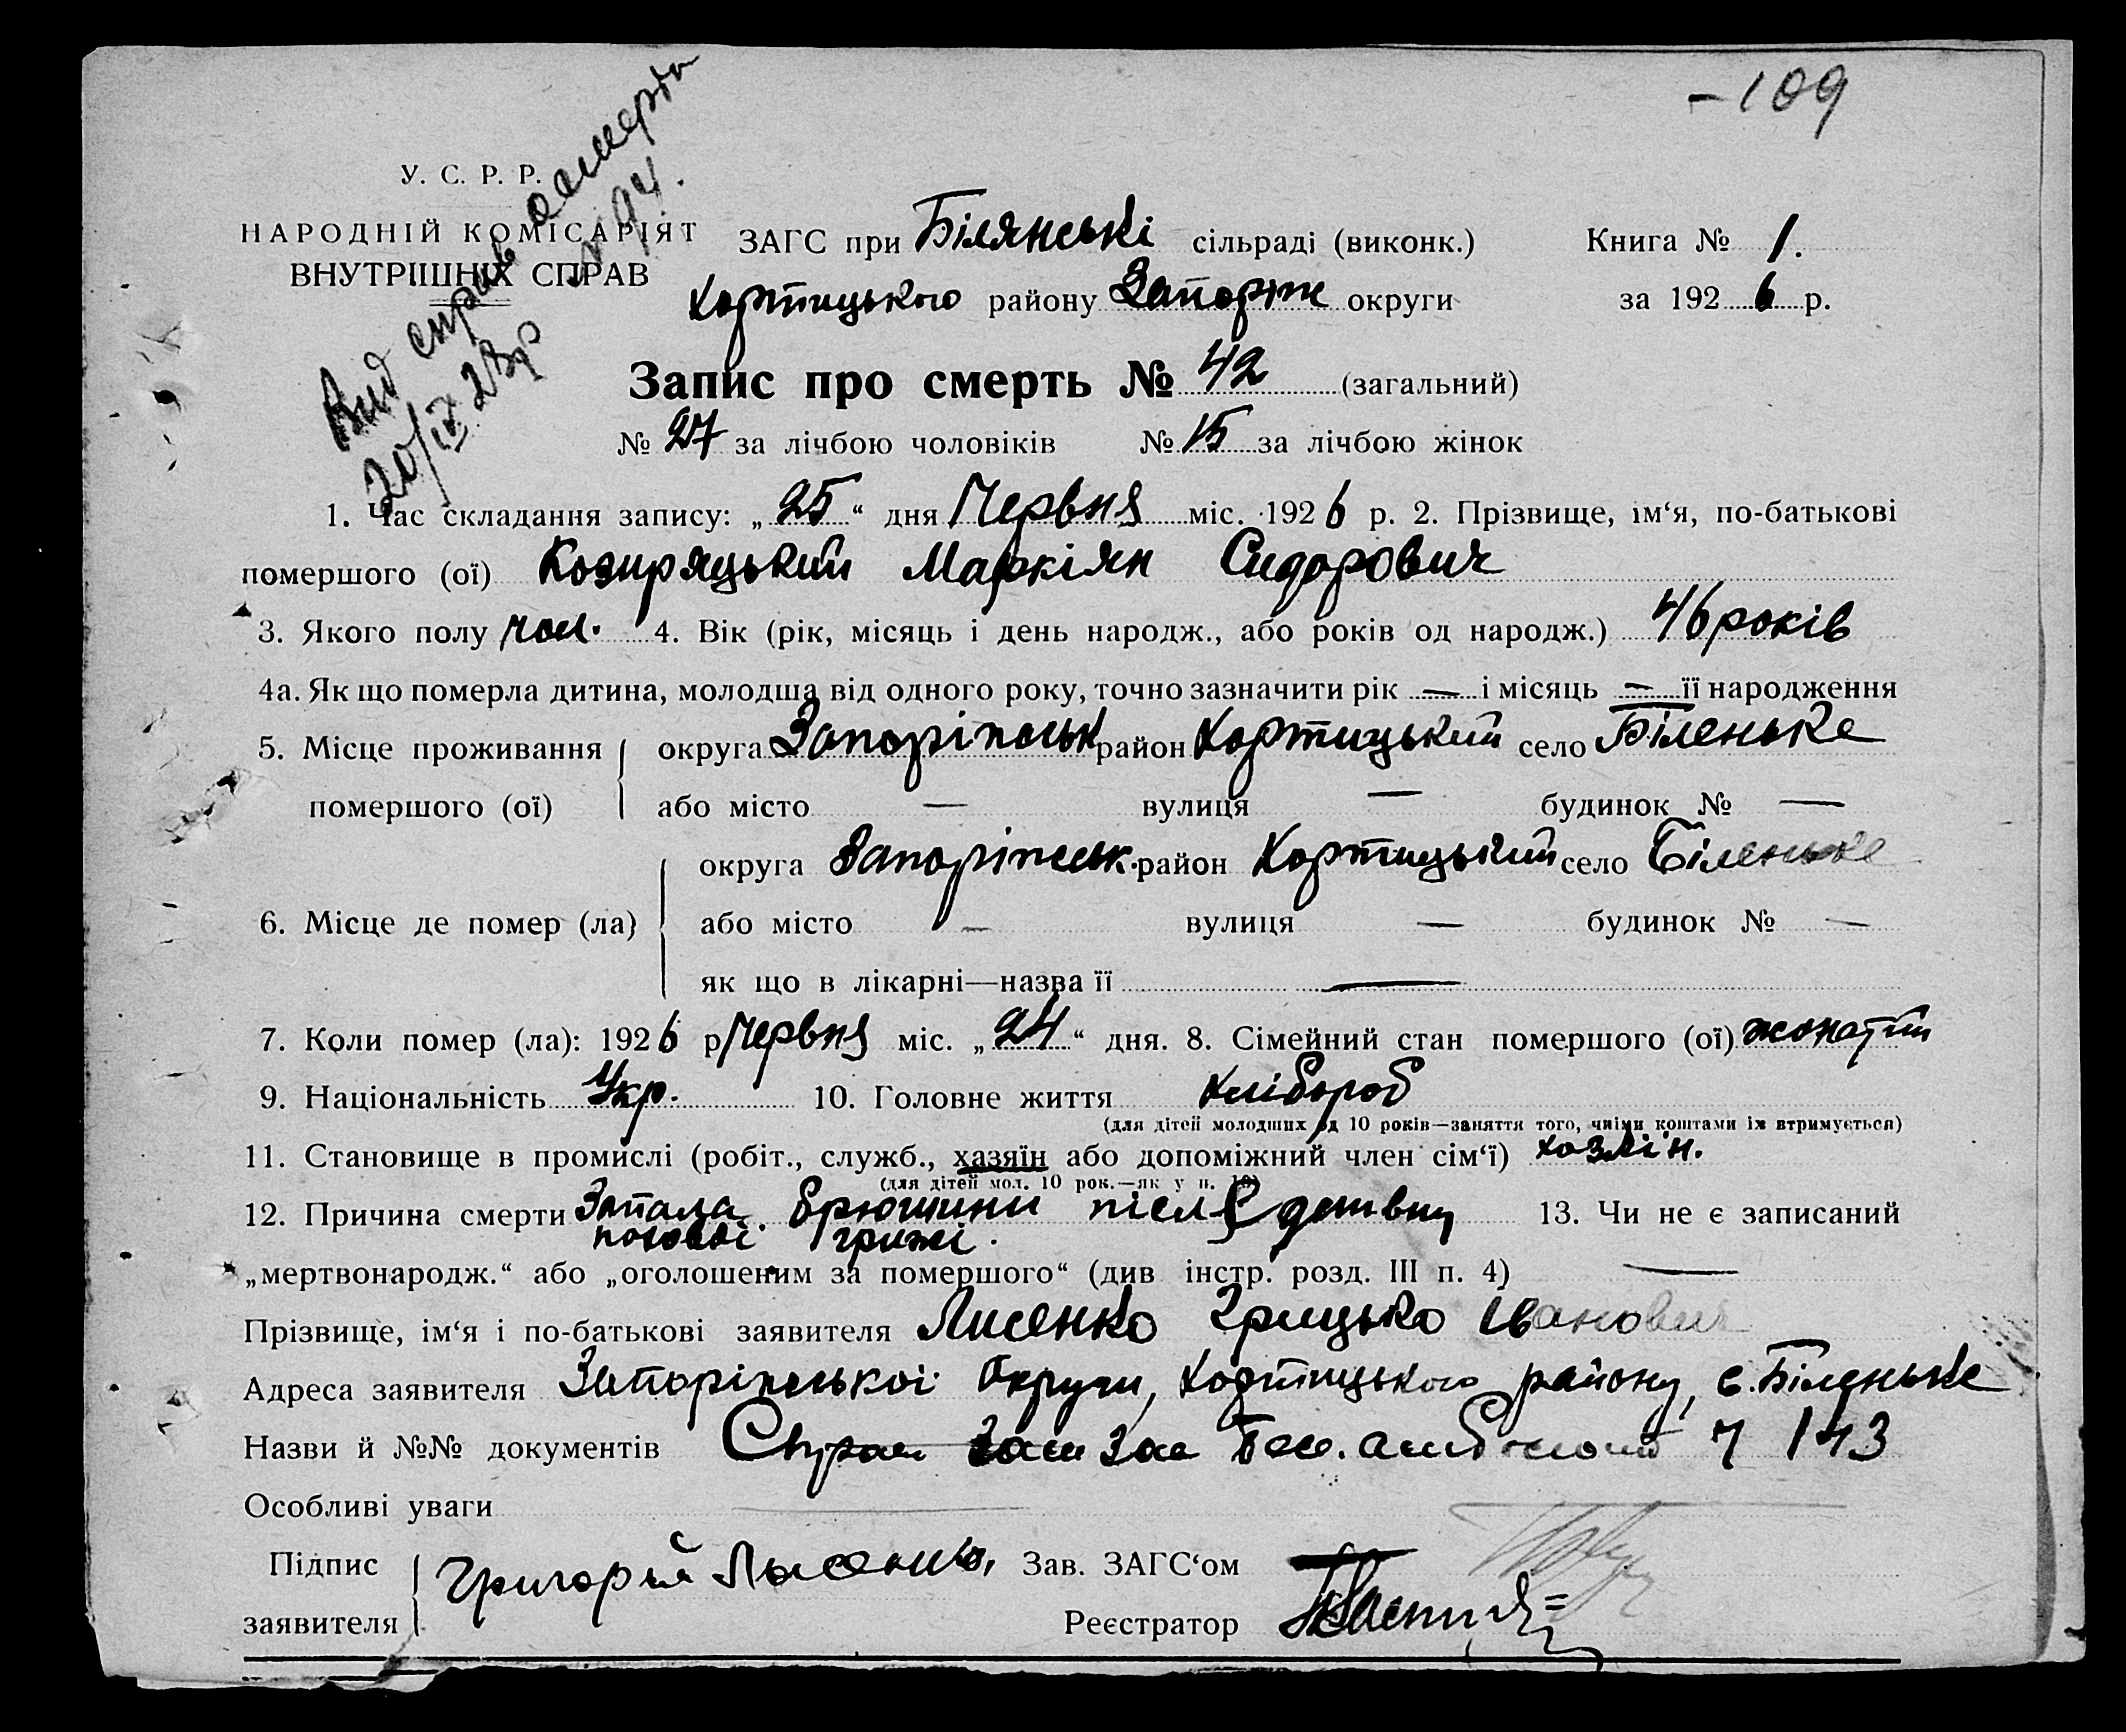 -109
Вид справ о смерти
20/IX 23р
У. С. Р. Р.
НАРОДНІЙ КОМІСАРІЯТ
ВНУТРІШНІХ СПРАВ
ЗАГС при Білянські сільраді (виконк.) Книга № 1.
Хортицького району Запоріж округи за 1926 р.
Запис про смерть № 42 (загальний)
№ 27 за лічбою чоловіків № 15 за лічбою жінок
1. Час складання запису: „25“ дня Червня міс. 1926 р. 2. Прізвище, ім‘я, по-батькові
помершого (ої) Козиряцький Маркіян Сидорович
3. Якого полу чол. 4. Вік (рік, місяць і день народж., або років од народж.) 46 років
4а. Як що померла дитина, молодша від одного року, точно зазначити рік — і місяць — її народження
5. Місце проживання округа Запоріжськ район Хортицький село Біленьке
помершого (ої) або місто — вулиця — будинок № —
округа Запоріжськ. район Хортицький село Біленьке
6. Місце де помер (ла) або місто — вулиця — будинок № —
як що в лікарні—назва її —
7. Коли помер (ла): 1926 р Червня міс. „24“ дня. 8. Сімейний стан помершого (ої) жонатий
9. Національність Укр. 10. Головне життя хлібороб
(для дітей молодших од 10 років—заняття того, чиїми коштами їх втримується)
11. Становище в промислі (робіт., служб., хазяїн або допоміжний член сім‘ї) хозяїн.
(для дітей мол. 10 рок.—як у п. 10)
12. Причина смерти Запала брюшини після 13. Чи не є записаний
грижі.
„мертвонародж.“ або „оголошеним за помершого“ (див інстр. розд. III п. 4) —
Прізвище, ім‘я і по-батькові заявителя Лисенко Грицько Іванович
Адреса заявителя Запоріжської Округи, Хортицького району, с. Біленьке
Назви й №№ документів 143
Особливі уваги
Підпис Григорий Лысенко, Зав. ЗАГС‘ом
заявителя Реєстратор